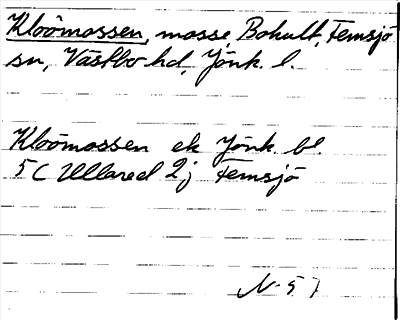 Kloömossen, mosse, Bohult, Femsjö
sn, Västbo hd, Jönk. l.
Kloömossen ek Jönk. bl.
5 C Ullared 2 j Femsjö
N-57